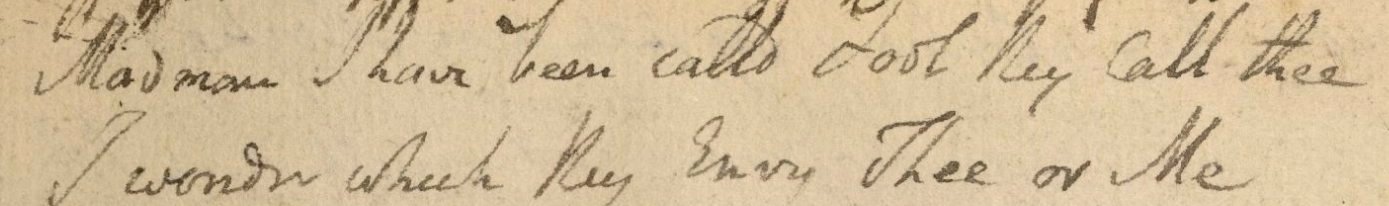 Madman I have been calld Fool they Call thee
I wonder which they Envy Thee or Me